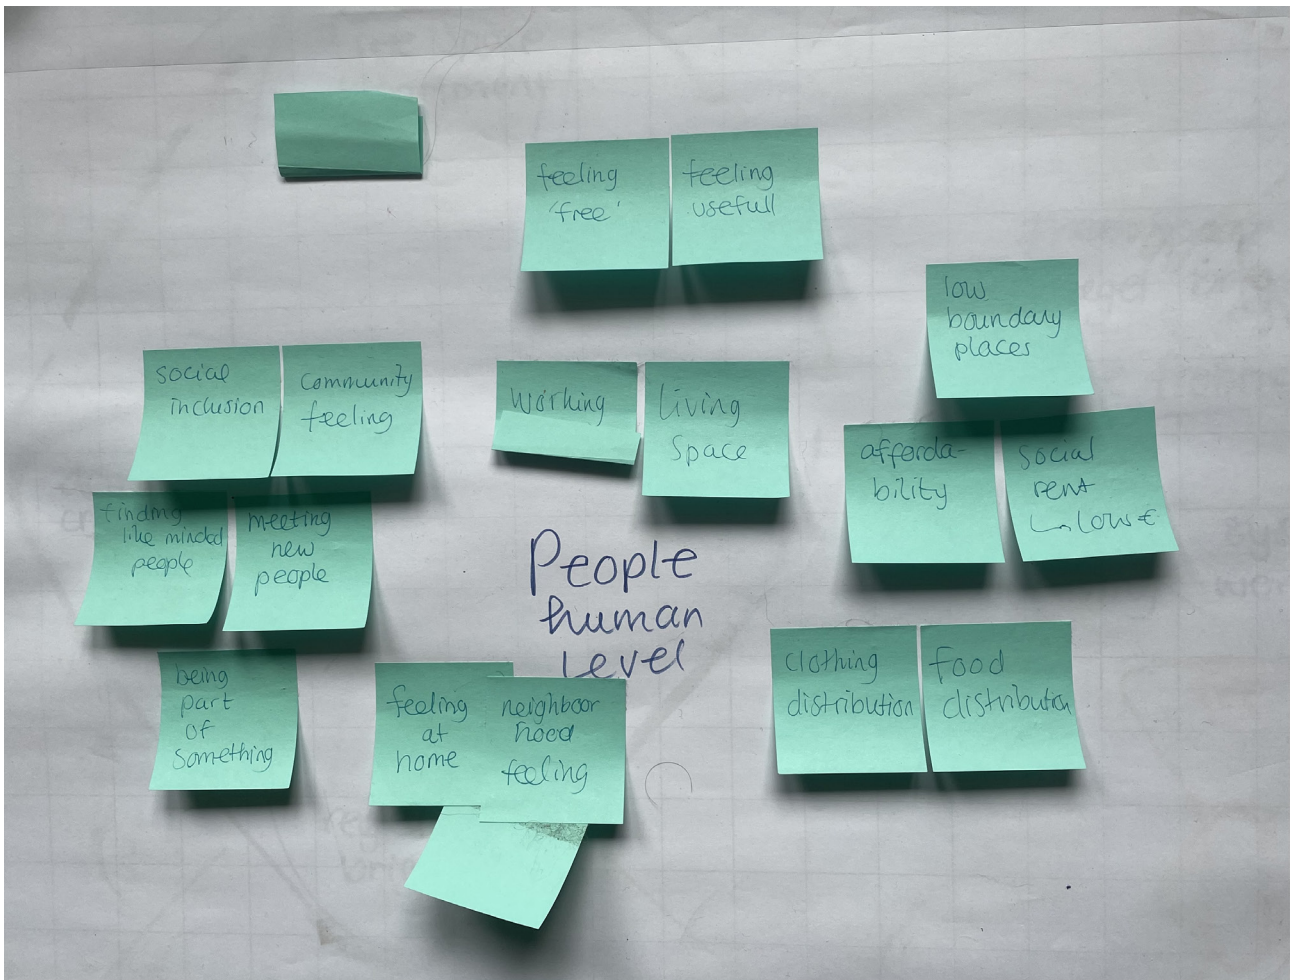 feeling
'free'
feeling
usefull
low
boundary
places
social
inclusion
community
feeling
working
living
space
afforda-
bility
social
rent
low €
finding
like minded
people
meeting
new
people
People
human
level
being
part
of
something
feeling
at
home
neighboor
hood
feeling
clothing
distribution
food
distribution